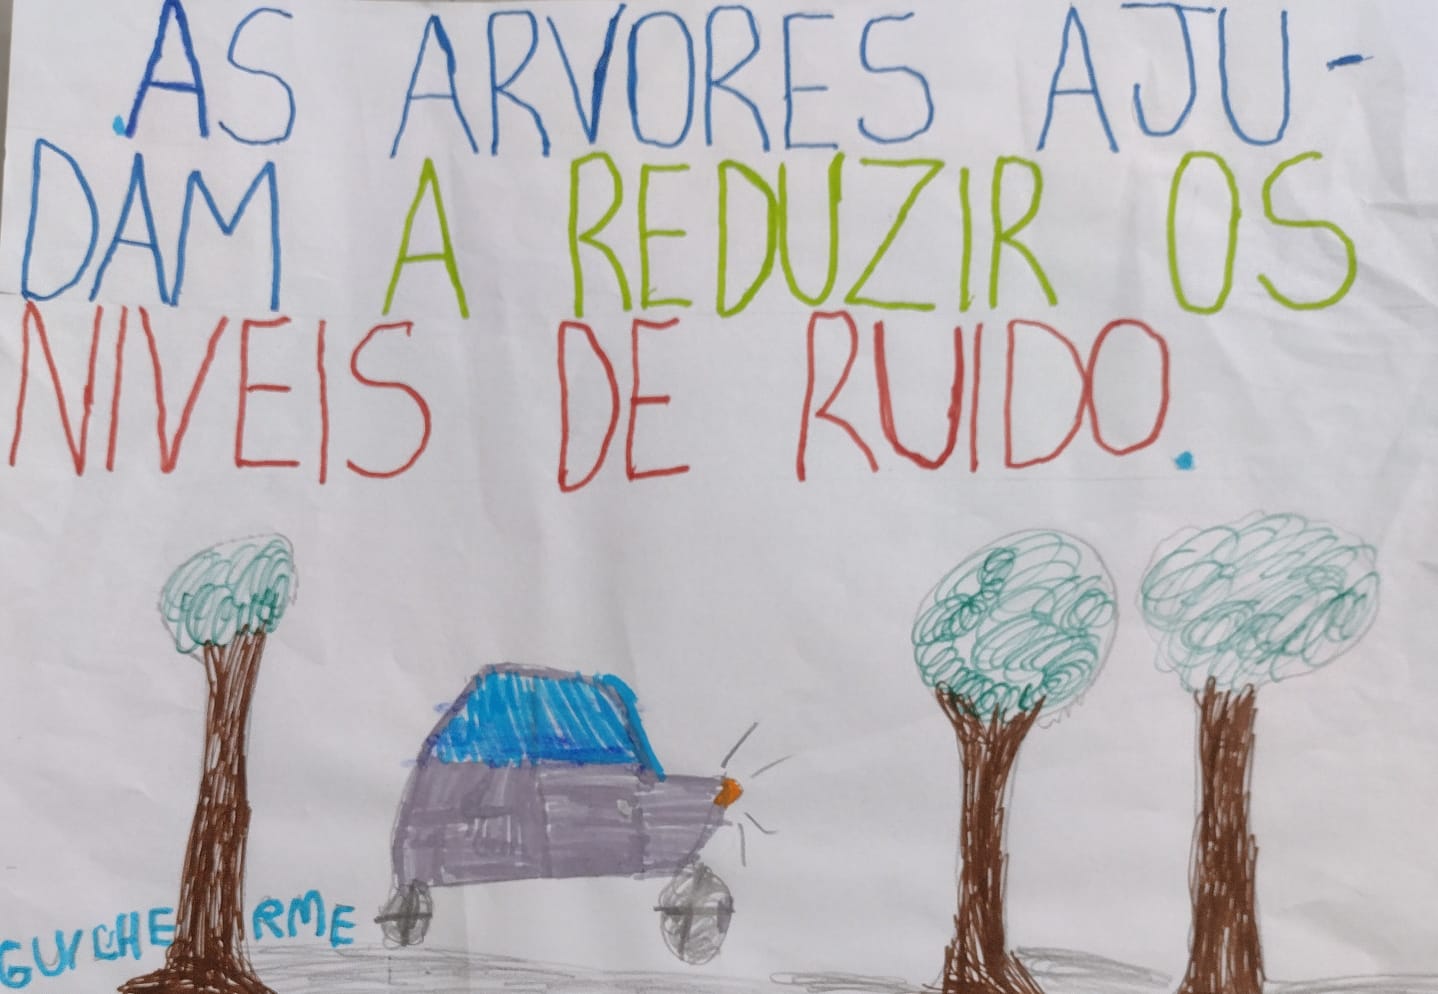 .AS ARVORES AJU-
DAM A REDUZIR OS
NIVEIS DE RUIDO.
GUILHERME